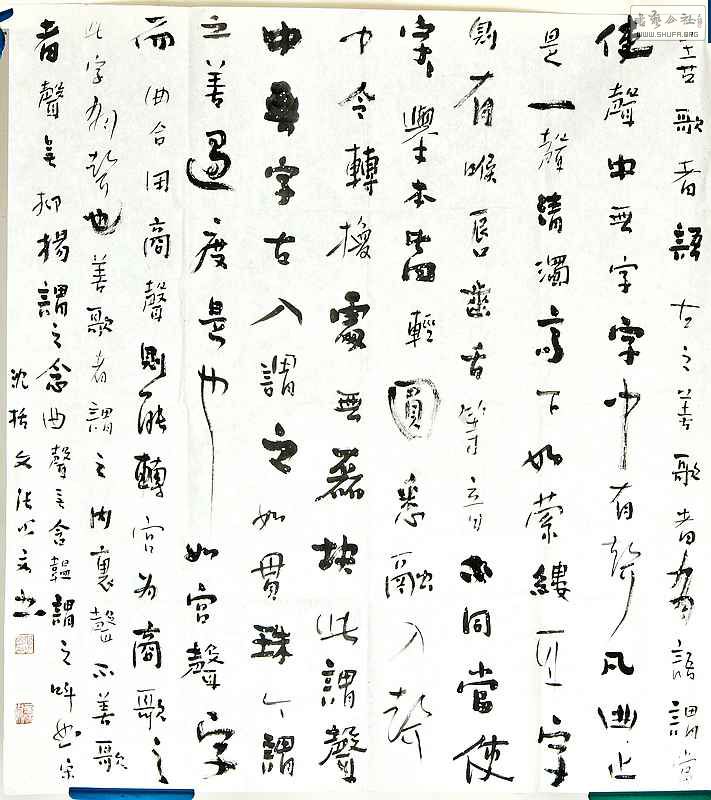 善歌者語 古之善歌者有語謂當
使聲中無字字中有聲凡曲止
是一聲清濁高下如縈縷耳字
則有喉唇齒舌等音不同當使
字舉本皆輕圓悉融入聲
中令轉換處無磊塊此謂聲
中無字古人謂之如貫珠今謂
之善過度是也如宮聲字
而曲合用商聲則能轉宮為商歌之
此字有聲也善歌者謂之內裏聲不善歌
者聲無抑揚謂之念曲聲無含韞謂之叫曲宋
沈括文
書藝公社
WWW.SHUFA.ORG